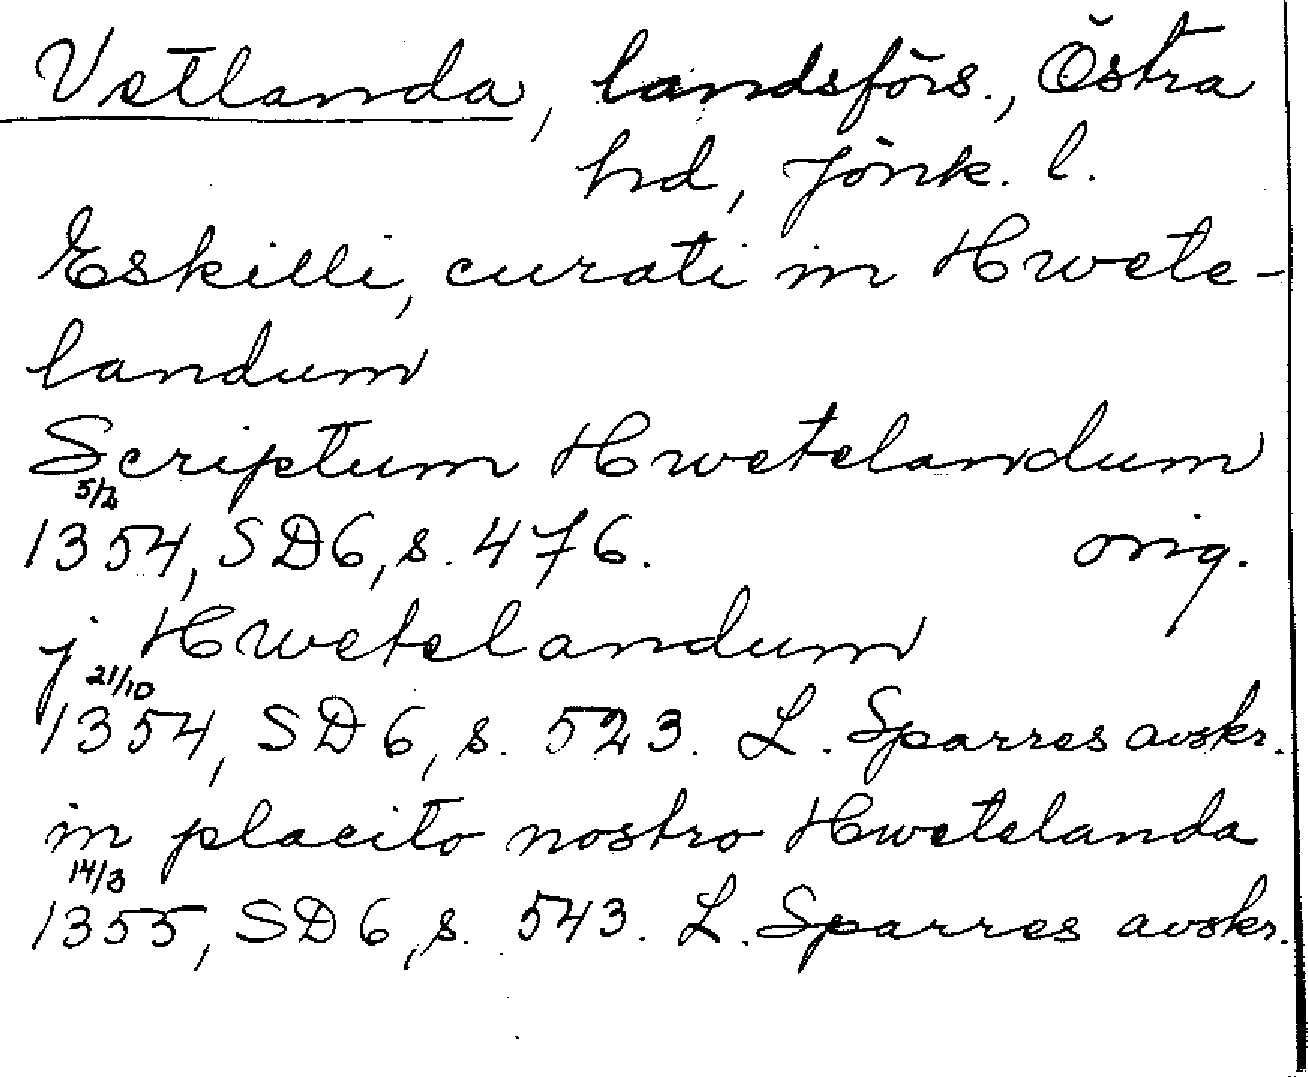 Vetlanda, landsförs., Östra
hd, Jönk. l.
Eskilli, curati in Hwete-
landum
Scriptum Hwetelandum
5/2
1354, SD6, s. 476. orig.
j Hwetelandum
21/10
1354, SD6, s. 523. L. Sparres avskr.
in placito nostro Hwetelanda
14/3
1355, SD6, s. 543. L. Sparres avskr.